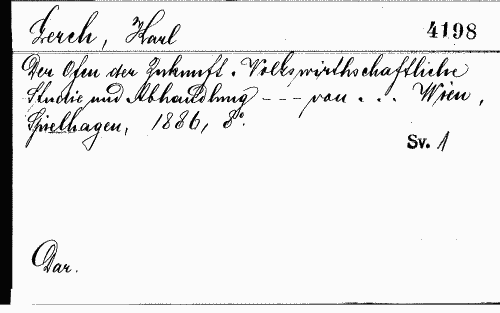 Lerch, Karl 4198
Der Ofen der Zukunft. Volkswirthschaftliche
Studie und Abhandlung --- von ... Wien,
Spielhagen, 1886, 8°.
Sv. 1
Dar.